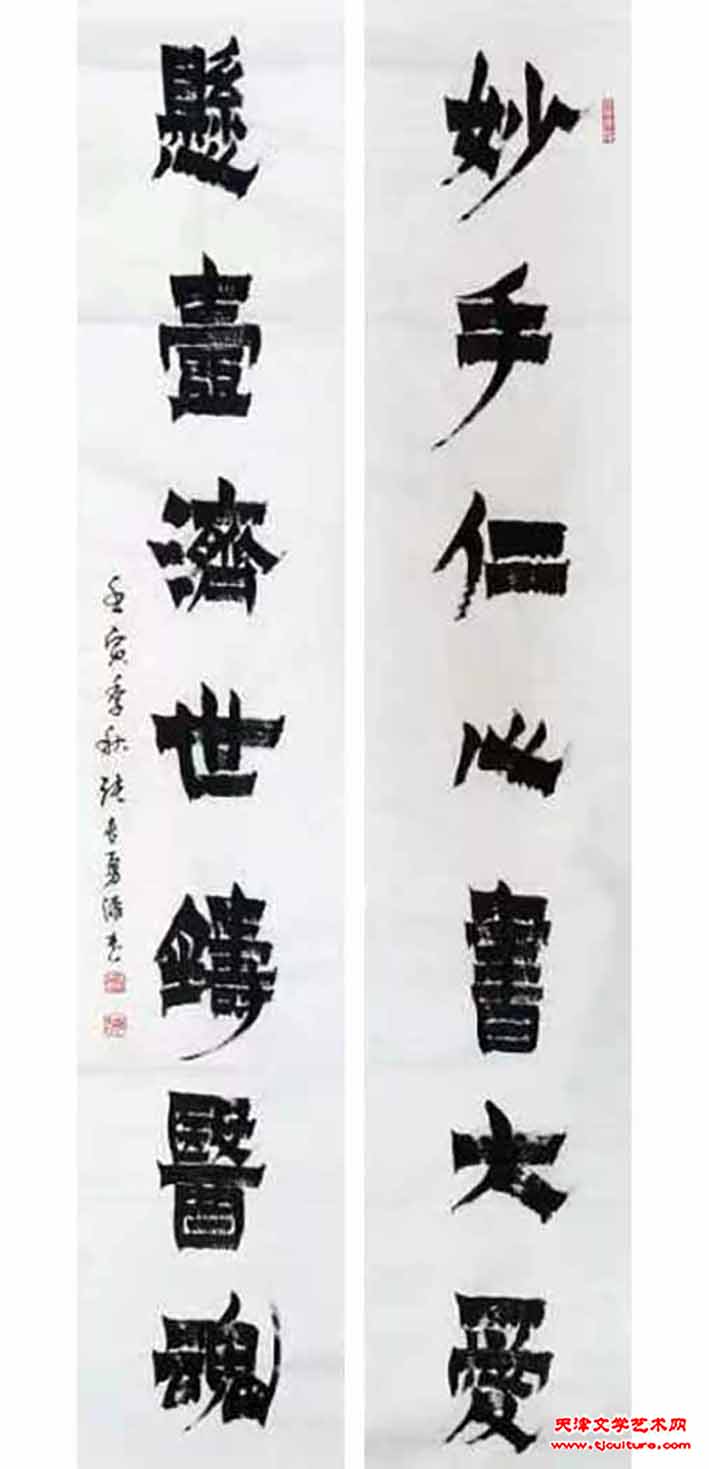 妙手仁心書大愛
懸壺濟世鑄醫魂
壬寅季秋張長勇源書
天津文学艺术网
www.tjculture.com